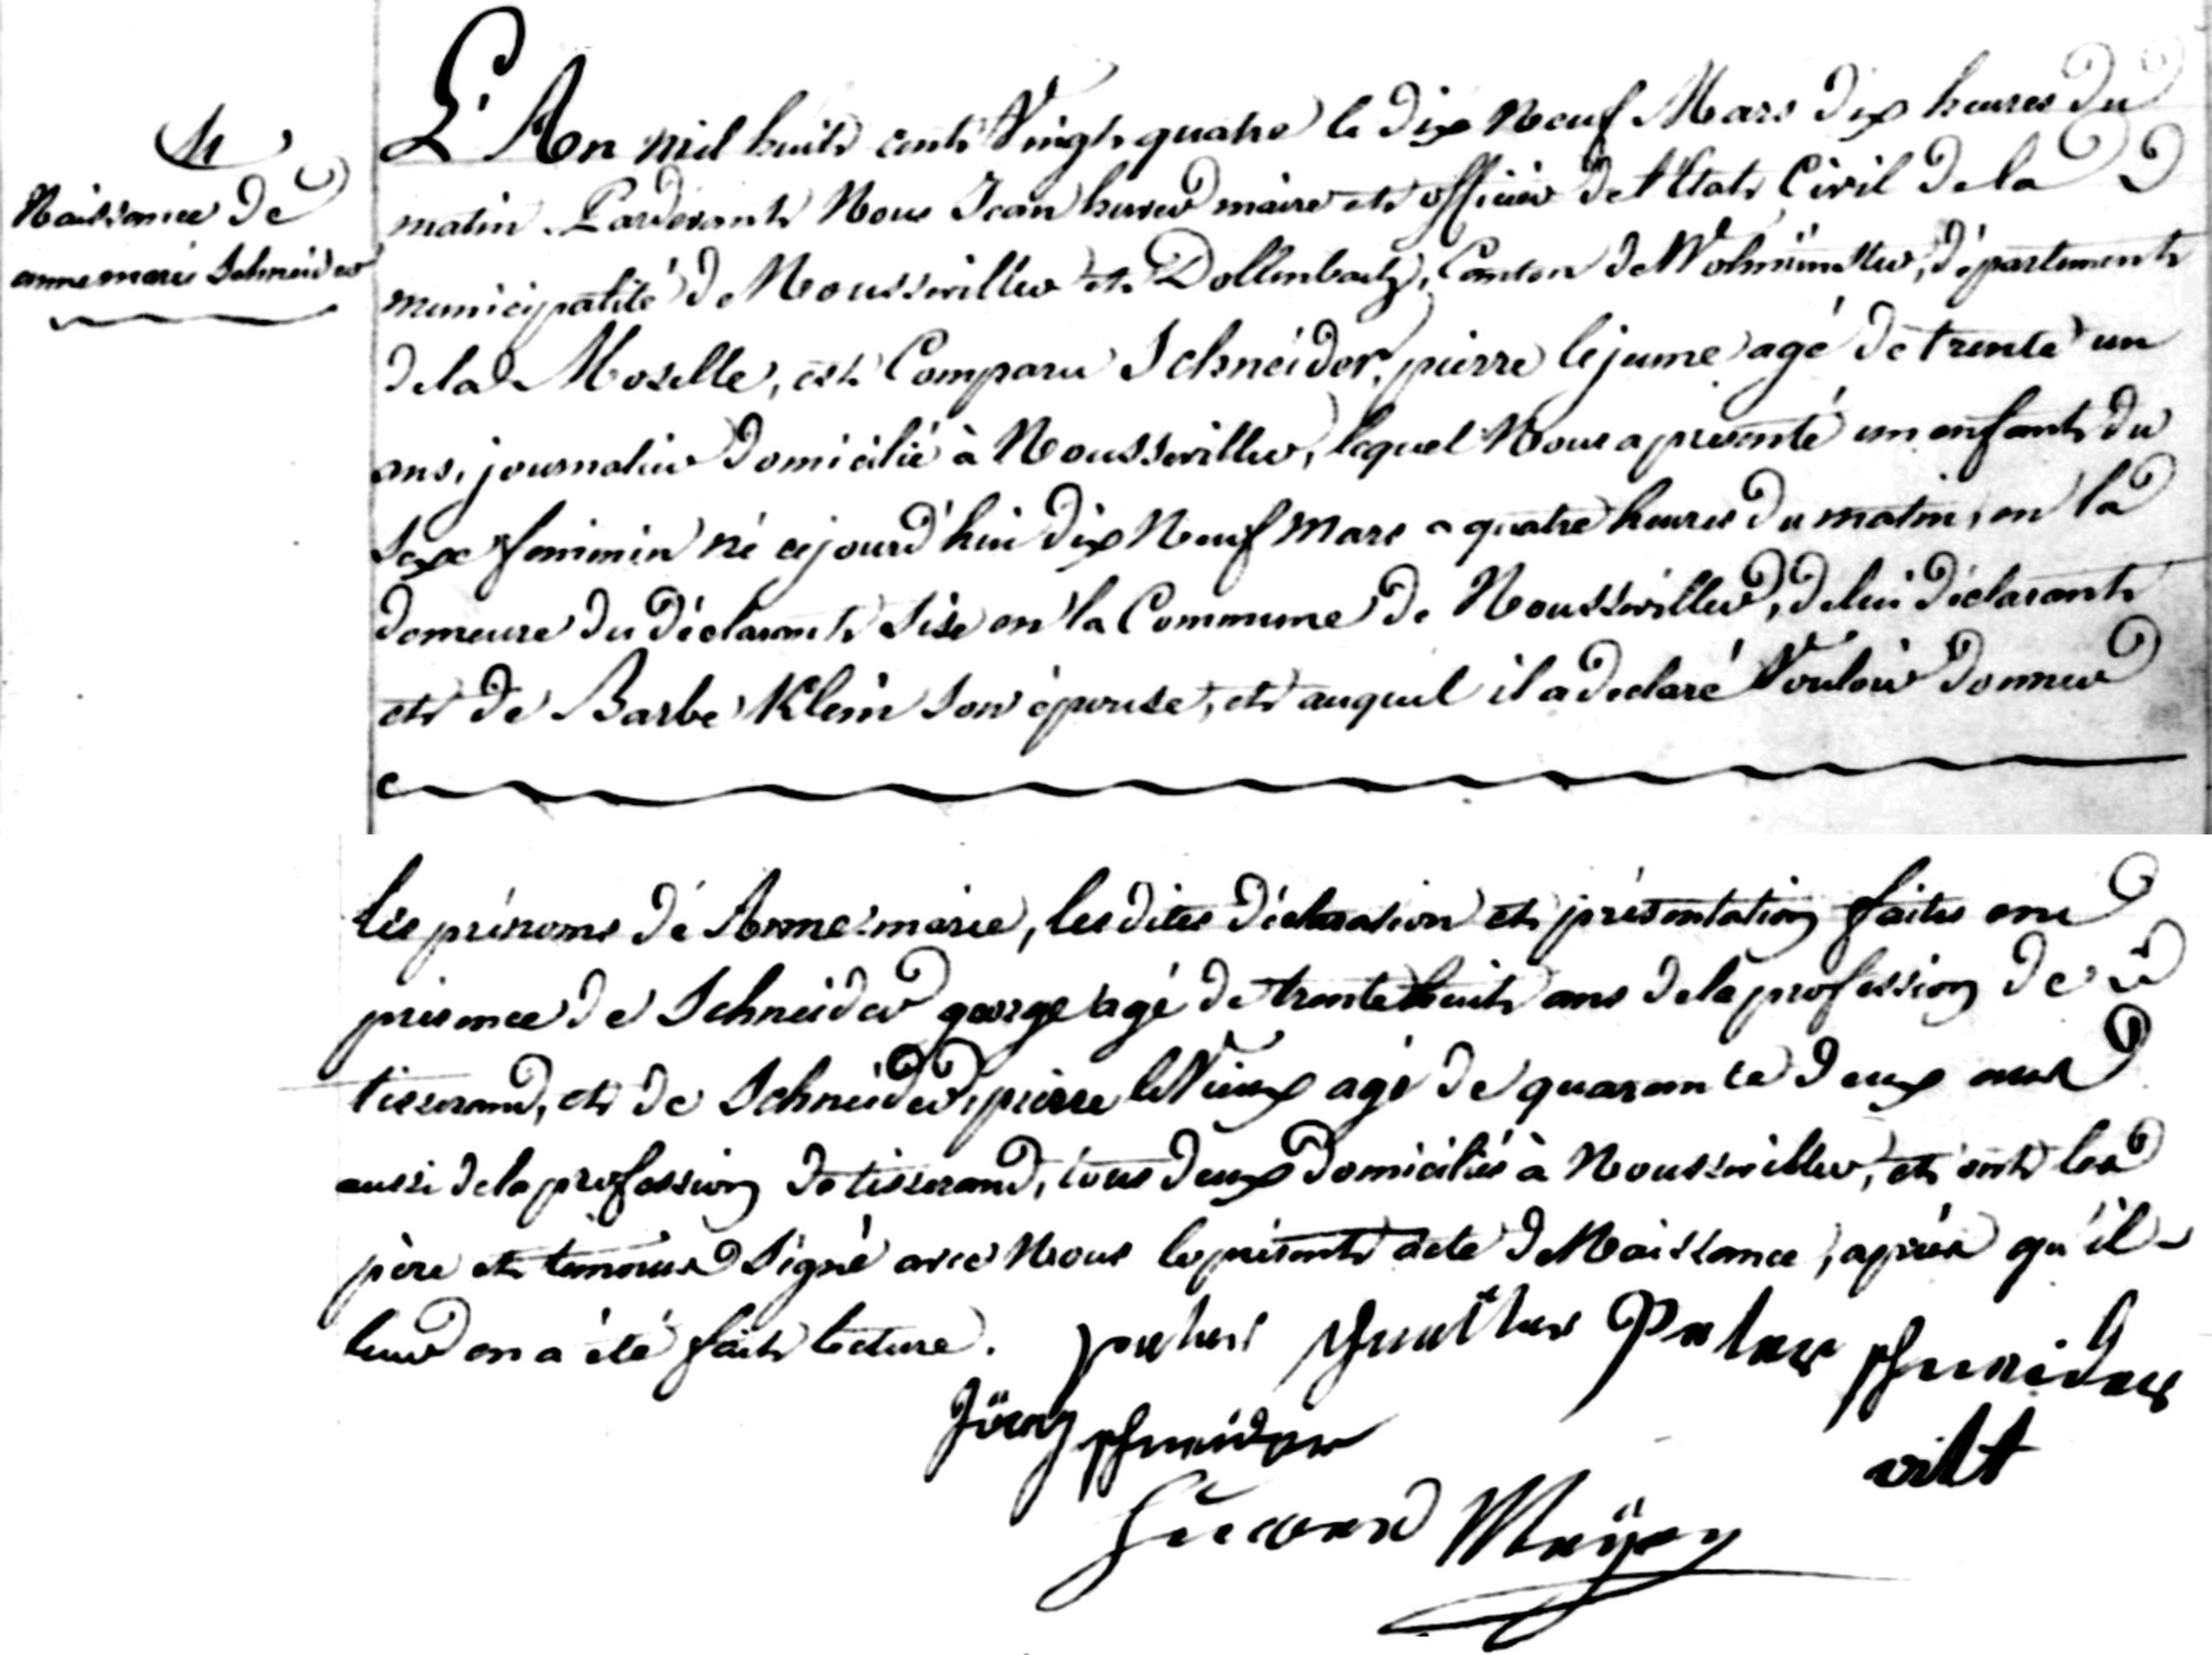 4
Naissance de
anne marie Schneider
L'An mil huit cent Vingt quatre le dix Neuf Mars dix heures du
matin Pardevant Nous Jean maire et officier de l'Etat Civil de la
municipalité de Nousseviller et Dollenbach, Canton de Wolmünster, département
de la Moselle, est Comparu Schneider, pierre le jeune agé de trente un
ans, journalier domicilié à Nousseviller, lequel Nous a presenté un enfant du
sexe feminin né cejourd'hui dix Neuf mars a quatre heures du matin, en la
demeure du déclarant sise en la Commune de Nousseviller, de lui déclarant
et de Barbe Klein son épouse, et auquel il a declaré Vouloir donner
les prénoms de Anne marie, les dites déclaration et présentation faites en
présence de Schneider george agé de trente huit ans de la profession de
tisserand, et de Schneider, pierre le Vieux agé de quarante deux ans
aussi de la profession de tisserand, tous deux domiciliés à Nousseviller, et ont les
père et temoins Signé avec Nous le présent acte de Naissance, après qu'il
leur en a été fait lecture. Peter schneider
Jörg schneider
alt